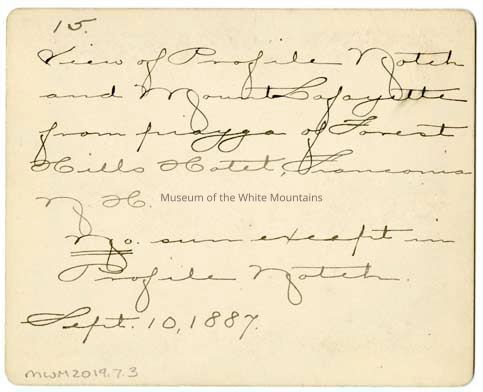 15.
View of Profile Notch
and Mount Lafayette
from piazza of Forest
Hills Hotel, Franconia
N. H.
Museum of the White Mountains
No. sun except in
Profile Notch.
Sept. 10, 1887.
MWM2019.7.3